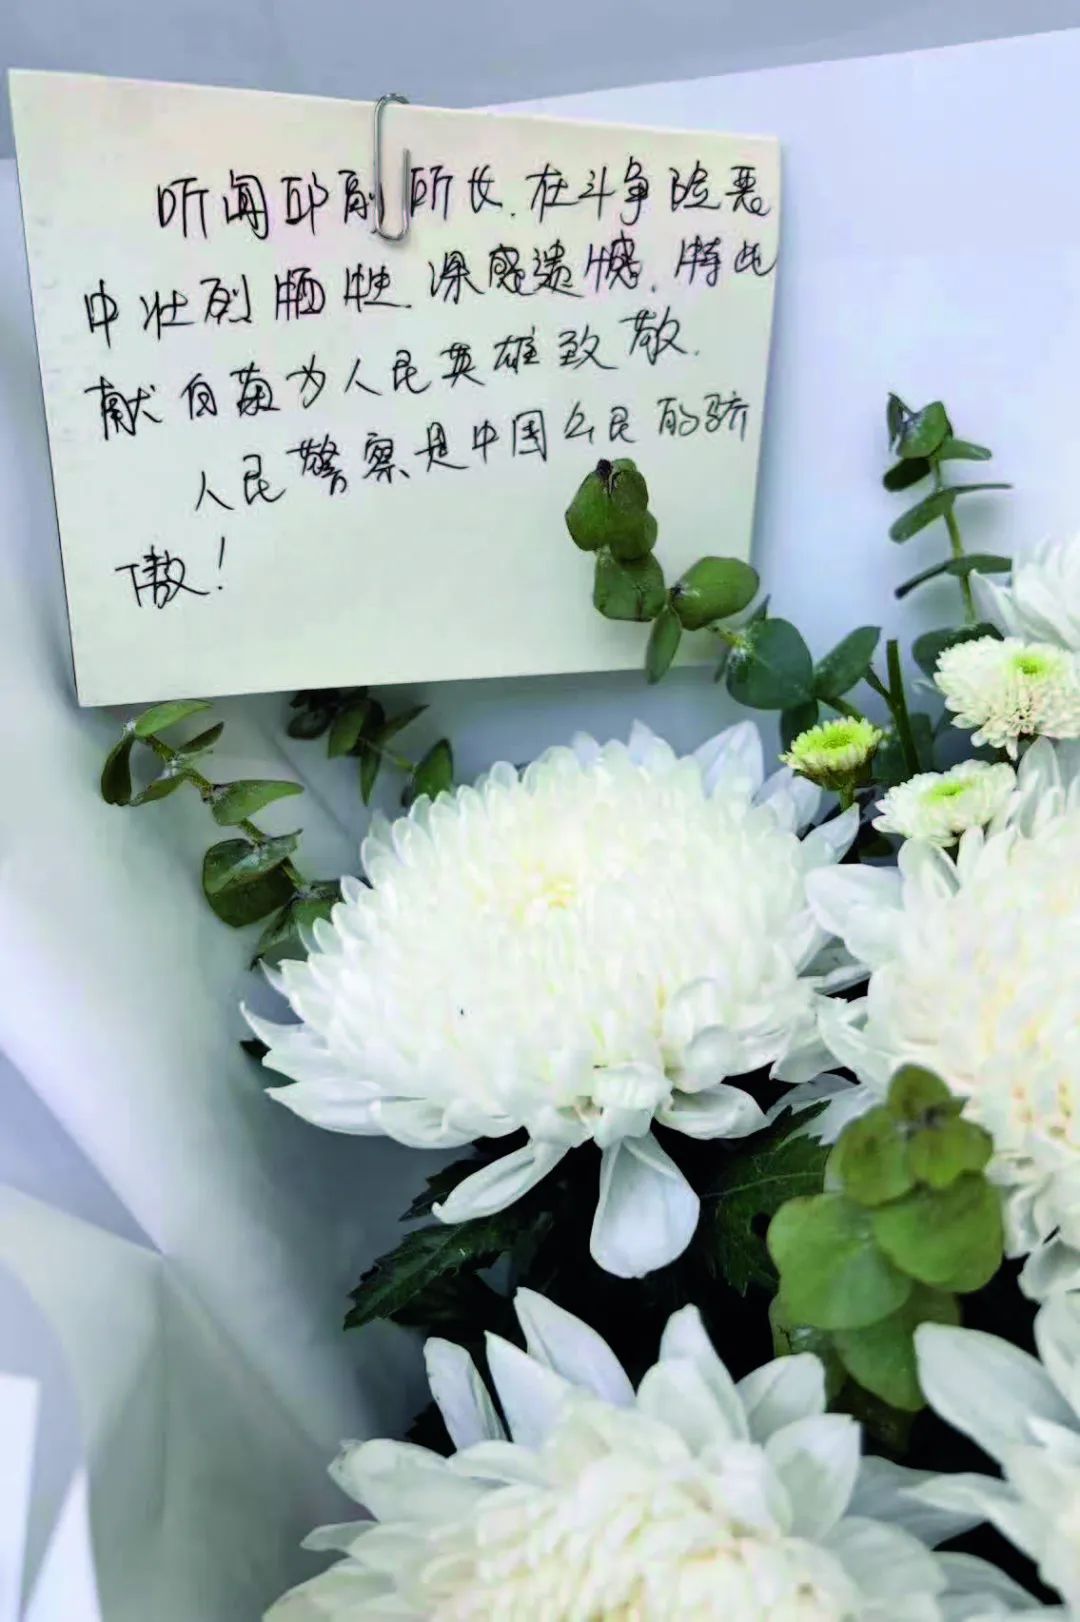 听闻邱副所长.在斗争险恶
中壮烈牺牲.深感遗憾.特此
献白菊为人民英雄致敬.
人民警察是中国公民的骄
傲!